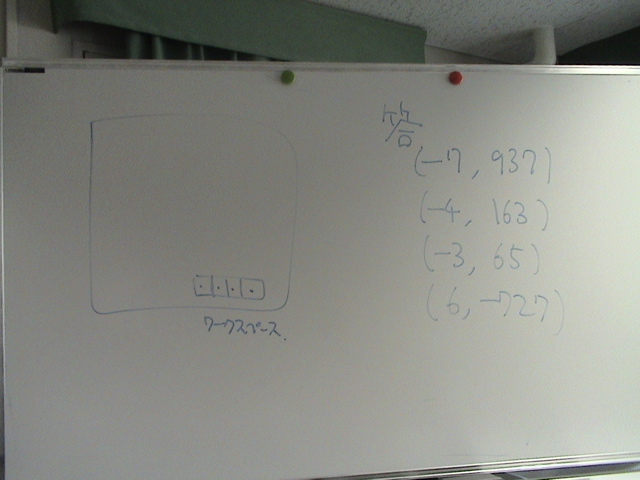 答
(-7, 937)
(-4, 163)
(-3, 65)
(6, -727)
ワークスペース.